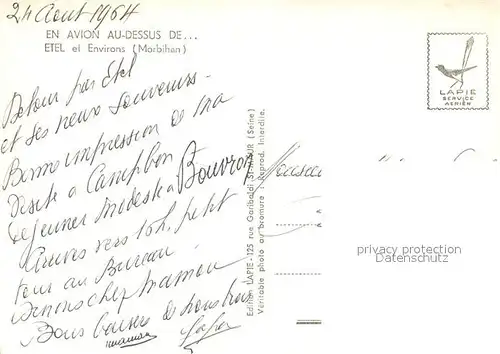 24 Aout 1964
EN AVION AU-DESSUS DE...
ETEL et Environs (Morbihan)
Retour par Etel
et ses vieux souvenirs -
Bonne impression de ma
visite a Campbon
dejeuner modeste a Bouvron
Arrivés vers 16h. petit
tour au Bureau
chez maman
Bons baisers de nous tous
maman
LAPIE
SERVICE
AÉRIEN
Edition LAPIE - 125 rue Garibaldi ST-MAUR (Seine)
Véritable photo au bromure : Reprod. Interdite.
privacy protection
Datenschutz